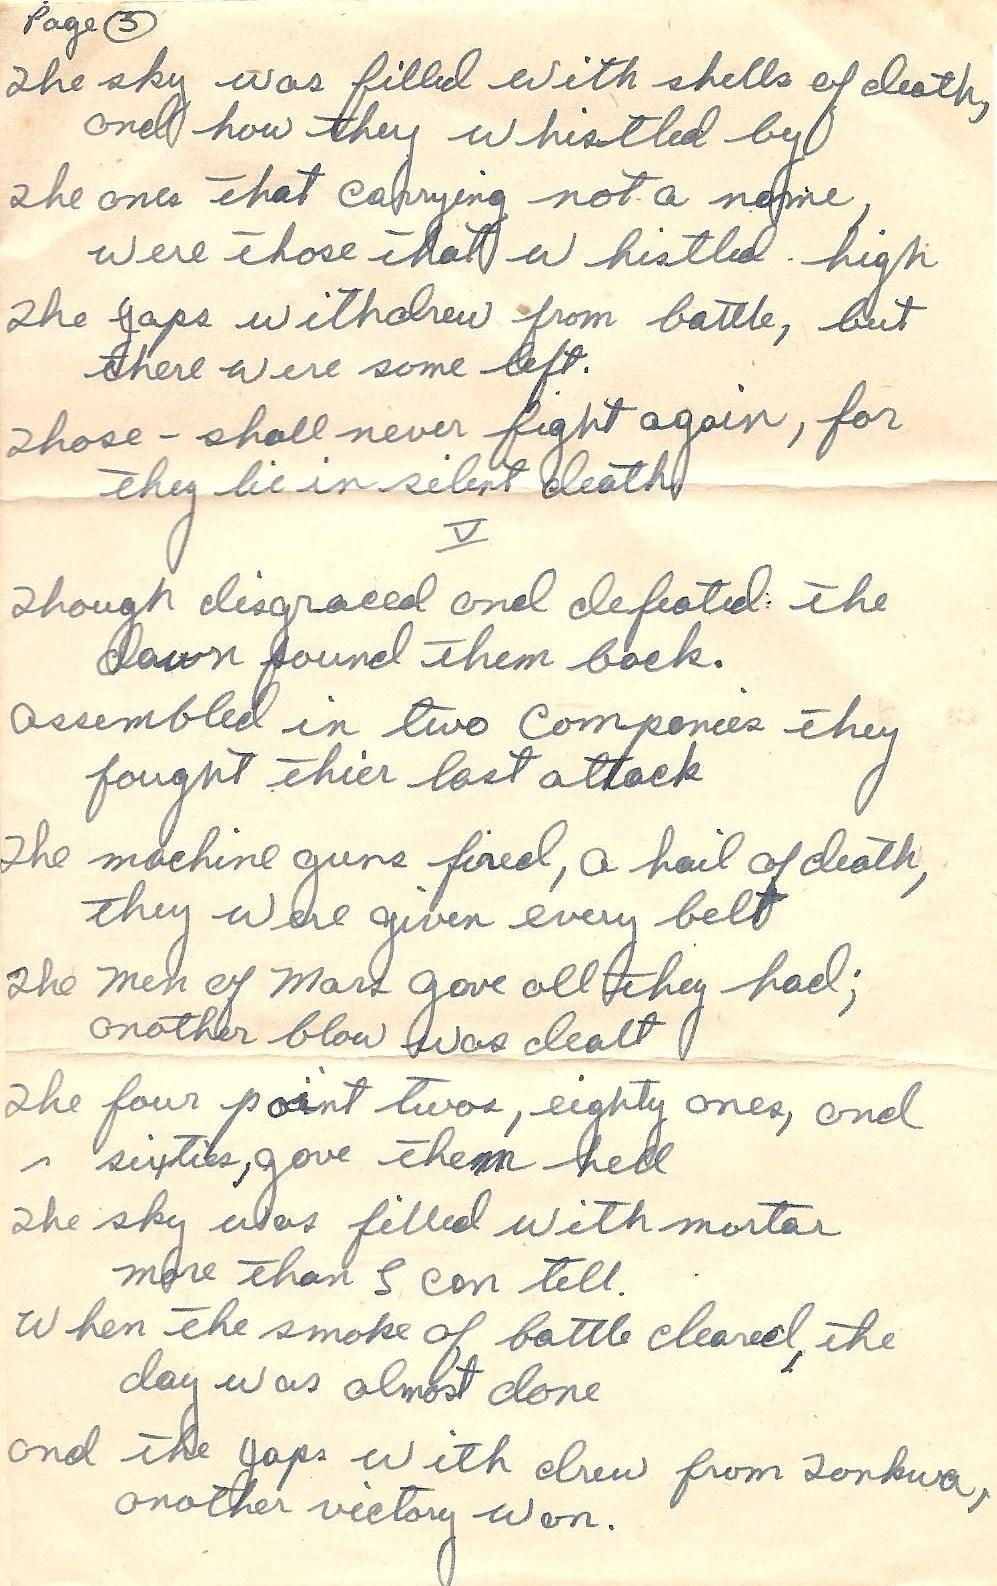 Page 5
The sky was filled with shells of death,
and how they whistled by
The ones that carrying not a name,
were those that whistled high
The Japs withdrew from battle, but
there were some left.
Those - shall never fight again, for
they lie in silent death
V
Though disgraced and defeated: the
dawn found them back.
Assembled in two companies they
fought thier last attack
The machine guns fired, a hail of death,
they were given every belt
The Men of Mars gave all they had;
another blow was dealt
The four point twos, eighty ones, and
sixties, gave them hell
The sky was filled with mortar
more than I can tell.
When the smoke of battle cleared, the
day was almost done
and the Japs with drew from Tonkwa,
another victory won.